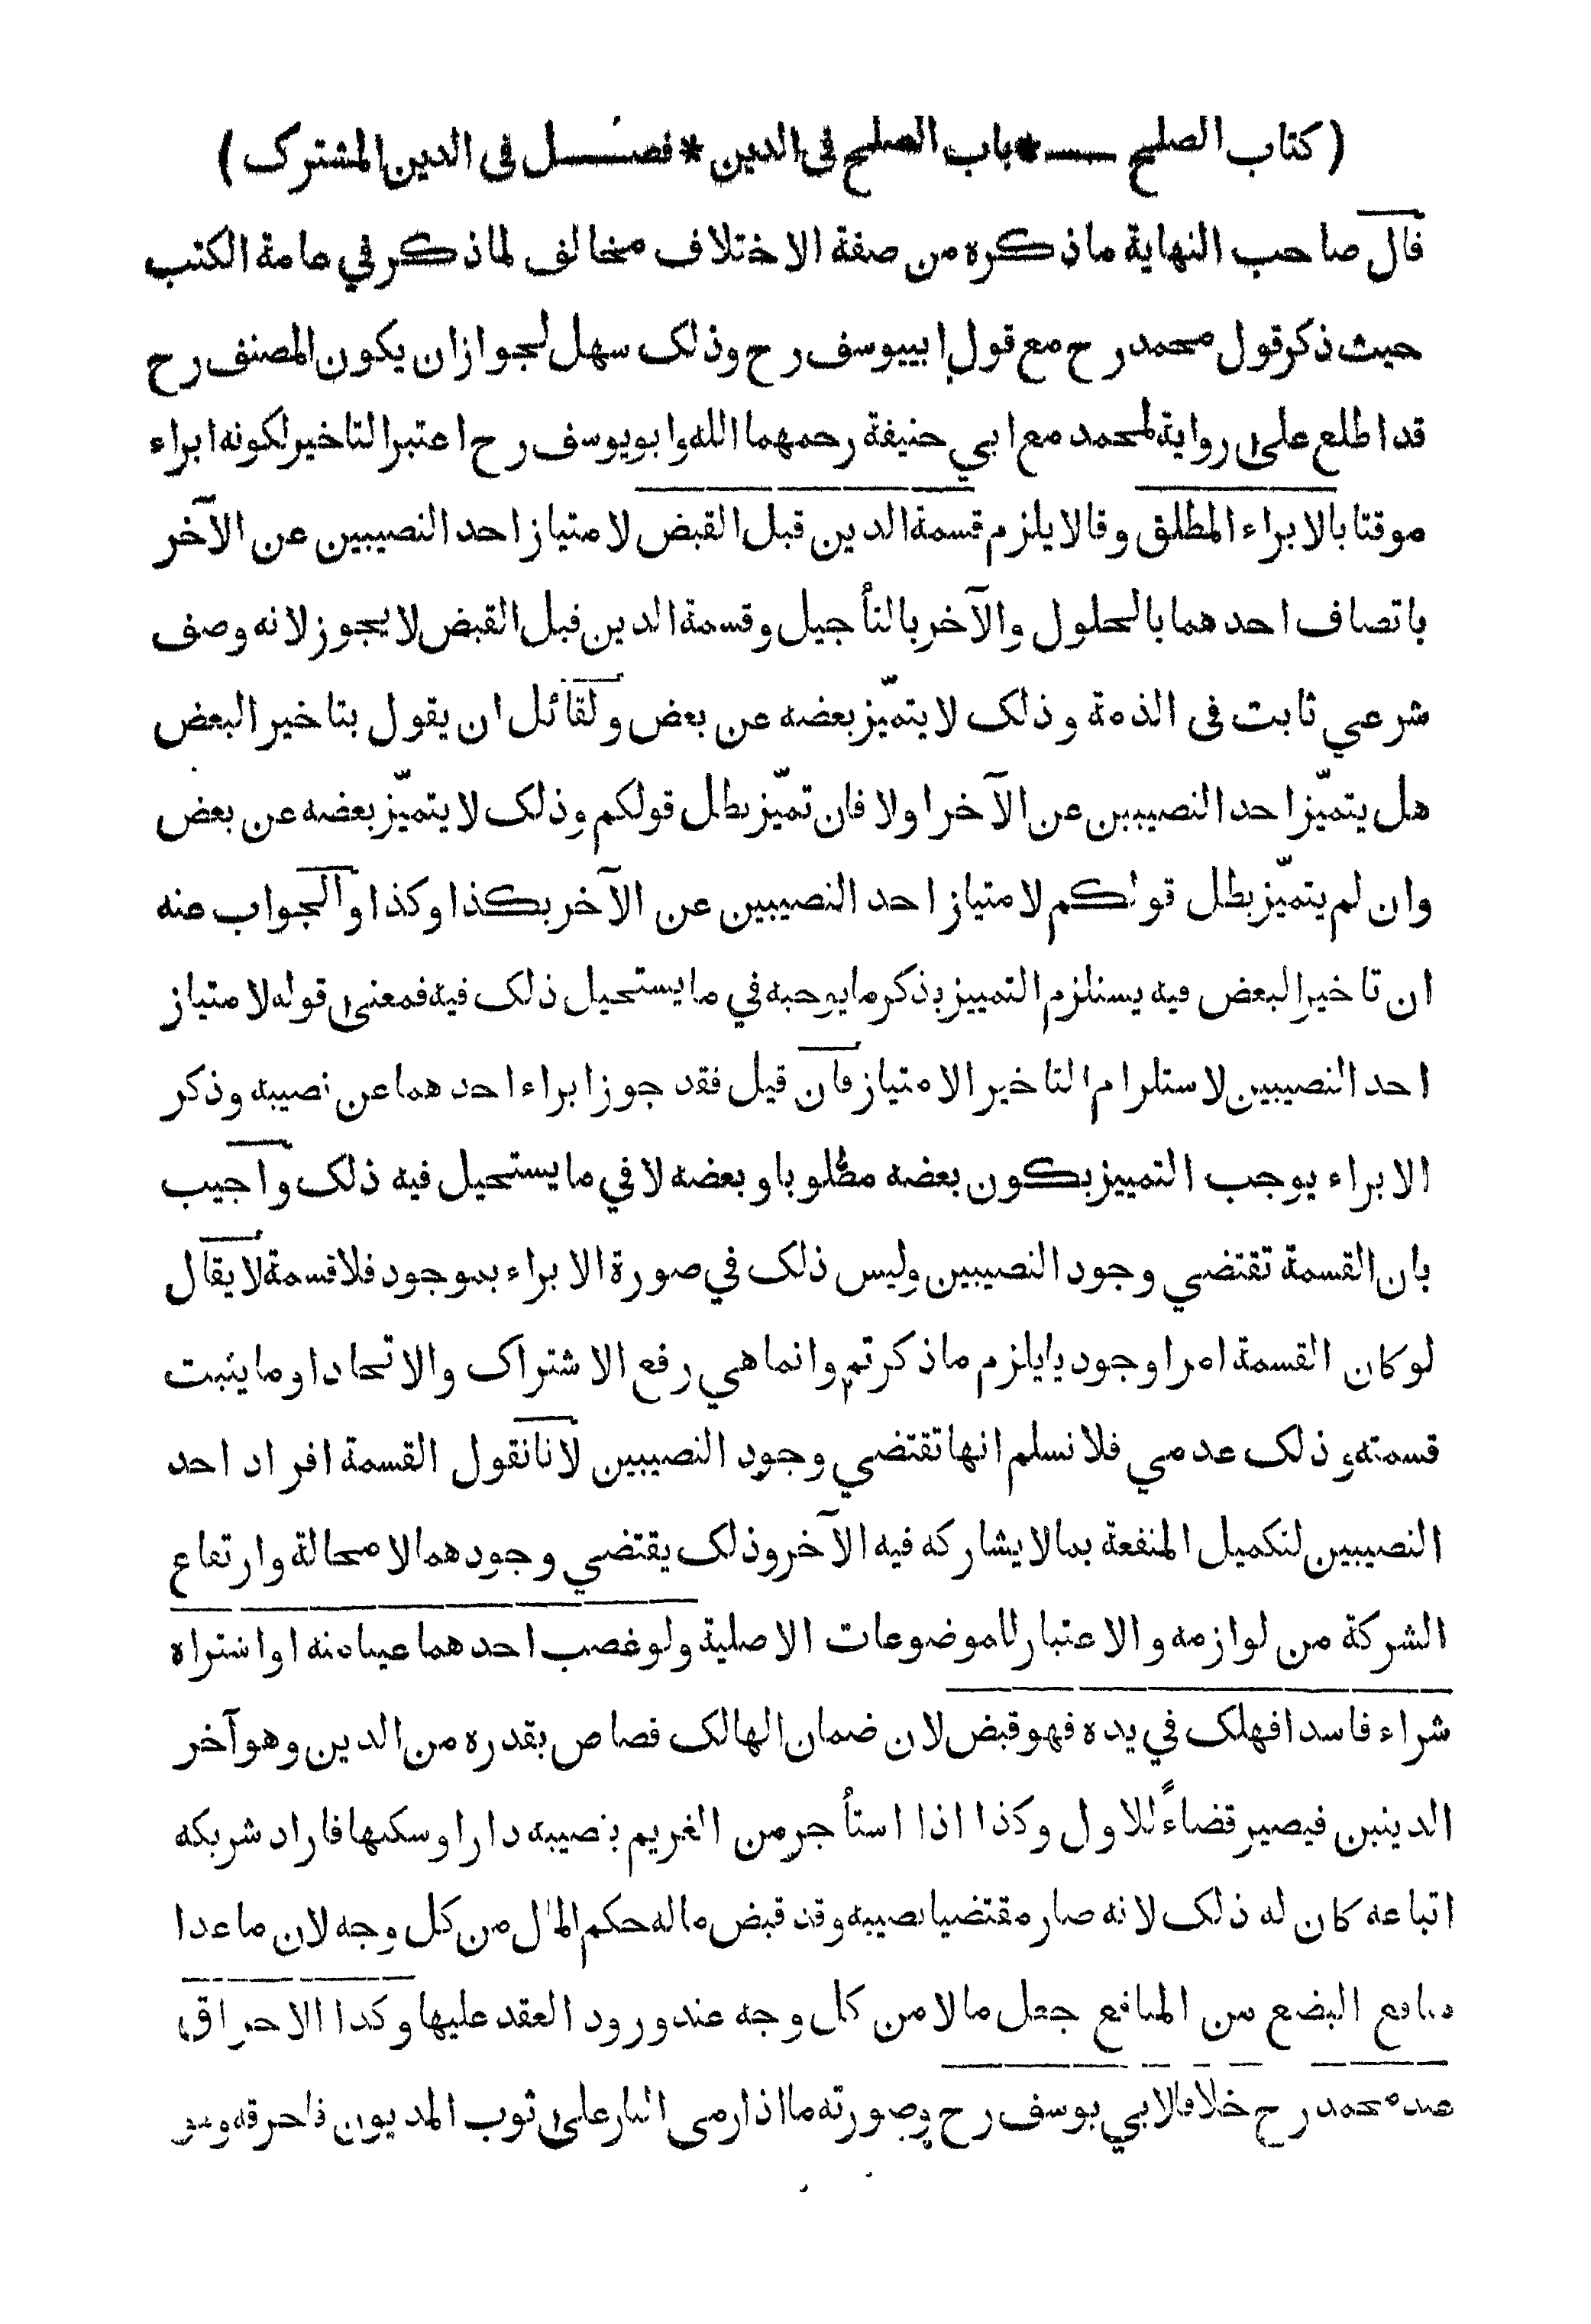 ( كتاب الصلح — * باب الصلح فى الدين * فصل فى الدين المشترك )
قال صاحب النهاية ماذكره من صفة الاختلاف مخالف لماذكر في عامة الكتب
حيث ذكرقول محمد رح مع قول ابييوسف رح وذلك سهل لجوازان يكون المصنف رح
قد اطلع على رواية لمحمد مع ابي حنيفة رحمهما الله وابويوسف رح اعتبر التاخير لكونه ابراء
موقتا بالابراء المطلق وقالا يلزم قسمة الدين قبل القبض لامتياز احد النصيبين عن الآخر
باتصاف احدهما بالحلول والآخر بالتأجيل وقسمة الدين قبل القبض لايجوز لانه وصف
شرعي ثابت فى الذمة وذلك لايتميّز بعضه عن بعض ولقائل ان يقول بتاخير البعض
هل يتميّز احد النصيبين عن الآخر اولا فان تميّز بطل قولكم وذلك لايتميّز بعضه عن بعض
وان لم يتميّز بطل قولكم لامتياز احد النصيبين عن الآخر بكذا وكذا والجواب عنه
ان تاخير البعض فيه يستلزم التمييز بذكر مايوجبه في مايستحيل ذلك فيه فمعنى قوله لامتياز
احد النصيبين لاستلزام التاخير الامتياز فان قيل فقد جوز ابراء احدهما عن نصيبه وذكر
الابراء يوجب التمييز بكون بعضه مطلوبا وبعضه لا في مايستحيل فيه ذلك واجيب
بان القسمة تقتضي وجود النصيبين وليس ذلك في صورة الابراء بموجود فلا قسمة لايقال
لوكان القسمة امرا وجوديا يلزم ماذكرتم وانما هي رفع الاشتراك والاتحاد او ماينبت
قسمته وذلك عدمي فلا نسلم انها تقتضي وجود النصيبين لانا نقول القسمة افراد احد
النصيبين لتكميل المنفعة بمالايشاركه فيه الآخر وذلك يقتضي وجودهما لامحالة وارتفاع
الشركة من لوازمه والاعتبار للموضوعات الاصلية ولو غصب احدهما عينا منه او اشتراه
شراء فاسدا فهلك في يده فهو قبض لان ضمان الهالك قصاص بقدره من الدين وهو آخر
الدينين فيصير قضاءً للاول وكذا اذا استأجر من الغريم بنصيبه دارا وسكنها فاراد شريكه
اتباعه كان له ذلك لانه صار مقتضيا نصيبه وقد قبض ماله حكم المال من كل وجه لان ماعدا
منافع البضع من المنافع جعل مالا من كل وجه عند ورود العقد عليها وكذا الاحراق
عند محمد رح خلافا لابي يوسف رح وصورته مااذا رمى النار على ثوب المديون فاحرقه وهو